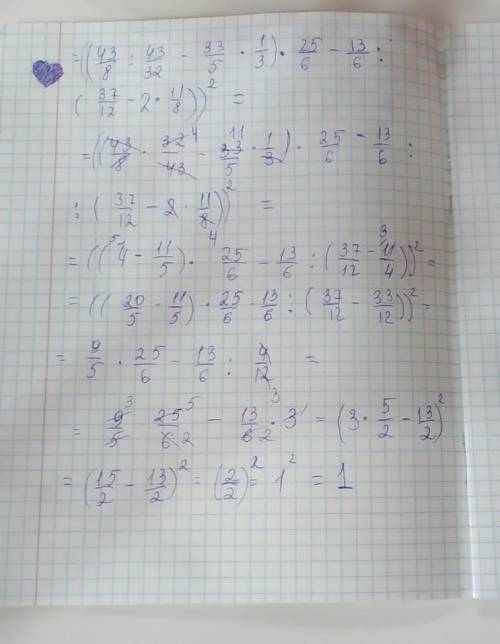 =((43/8 : 43/32 - 33/5 · 1/3) · 25/6 - 13/6 :
(37/12 - 2 · 11/8))² =
=((43/8 · 32/43 4 - 11 33/5 · 1/3) · 25/6 - 13/6 :
: (37/12 - 2 · 11/8 4))² =
= ((5 4 - 11/5) · 25/6 - 13/6 : (37/12 - 3 11/4))² =
= ((20/5 - 11/5) · 25/6 - 13/6 : (37/12 - 33/12))² =
= 9/5 · 25/6 - 13/6 : 4/12 =
= 9 3/5 25 5/6 2 - 13/6 2 · 3 1 = (3 · 5/2 - 13/2)²
= (15/2 - 13/2)² = (2/2)² = 1² = 1